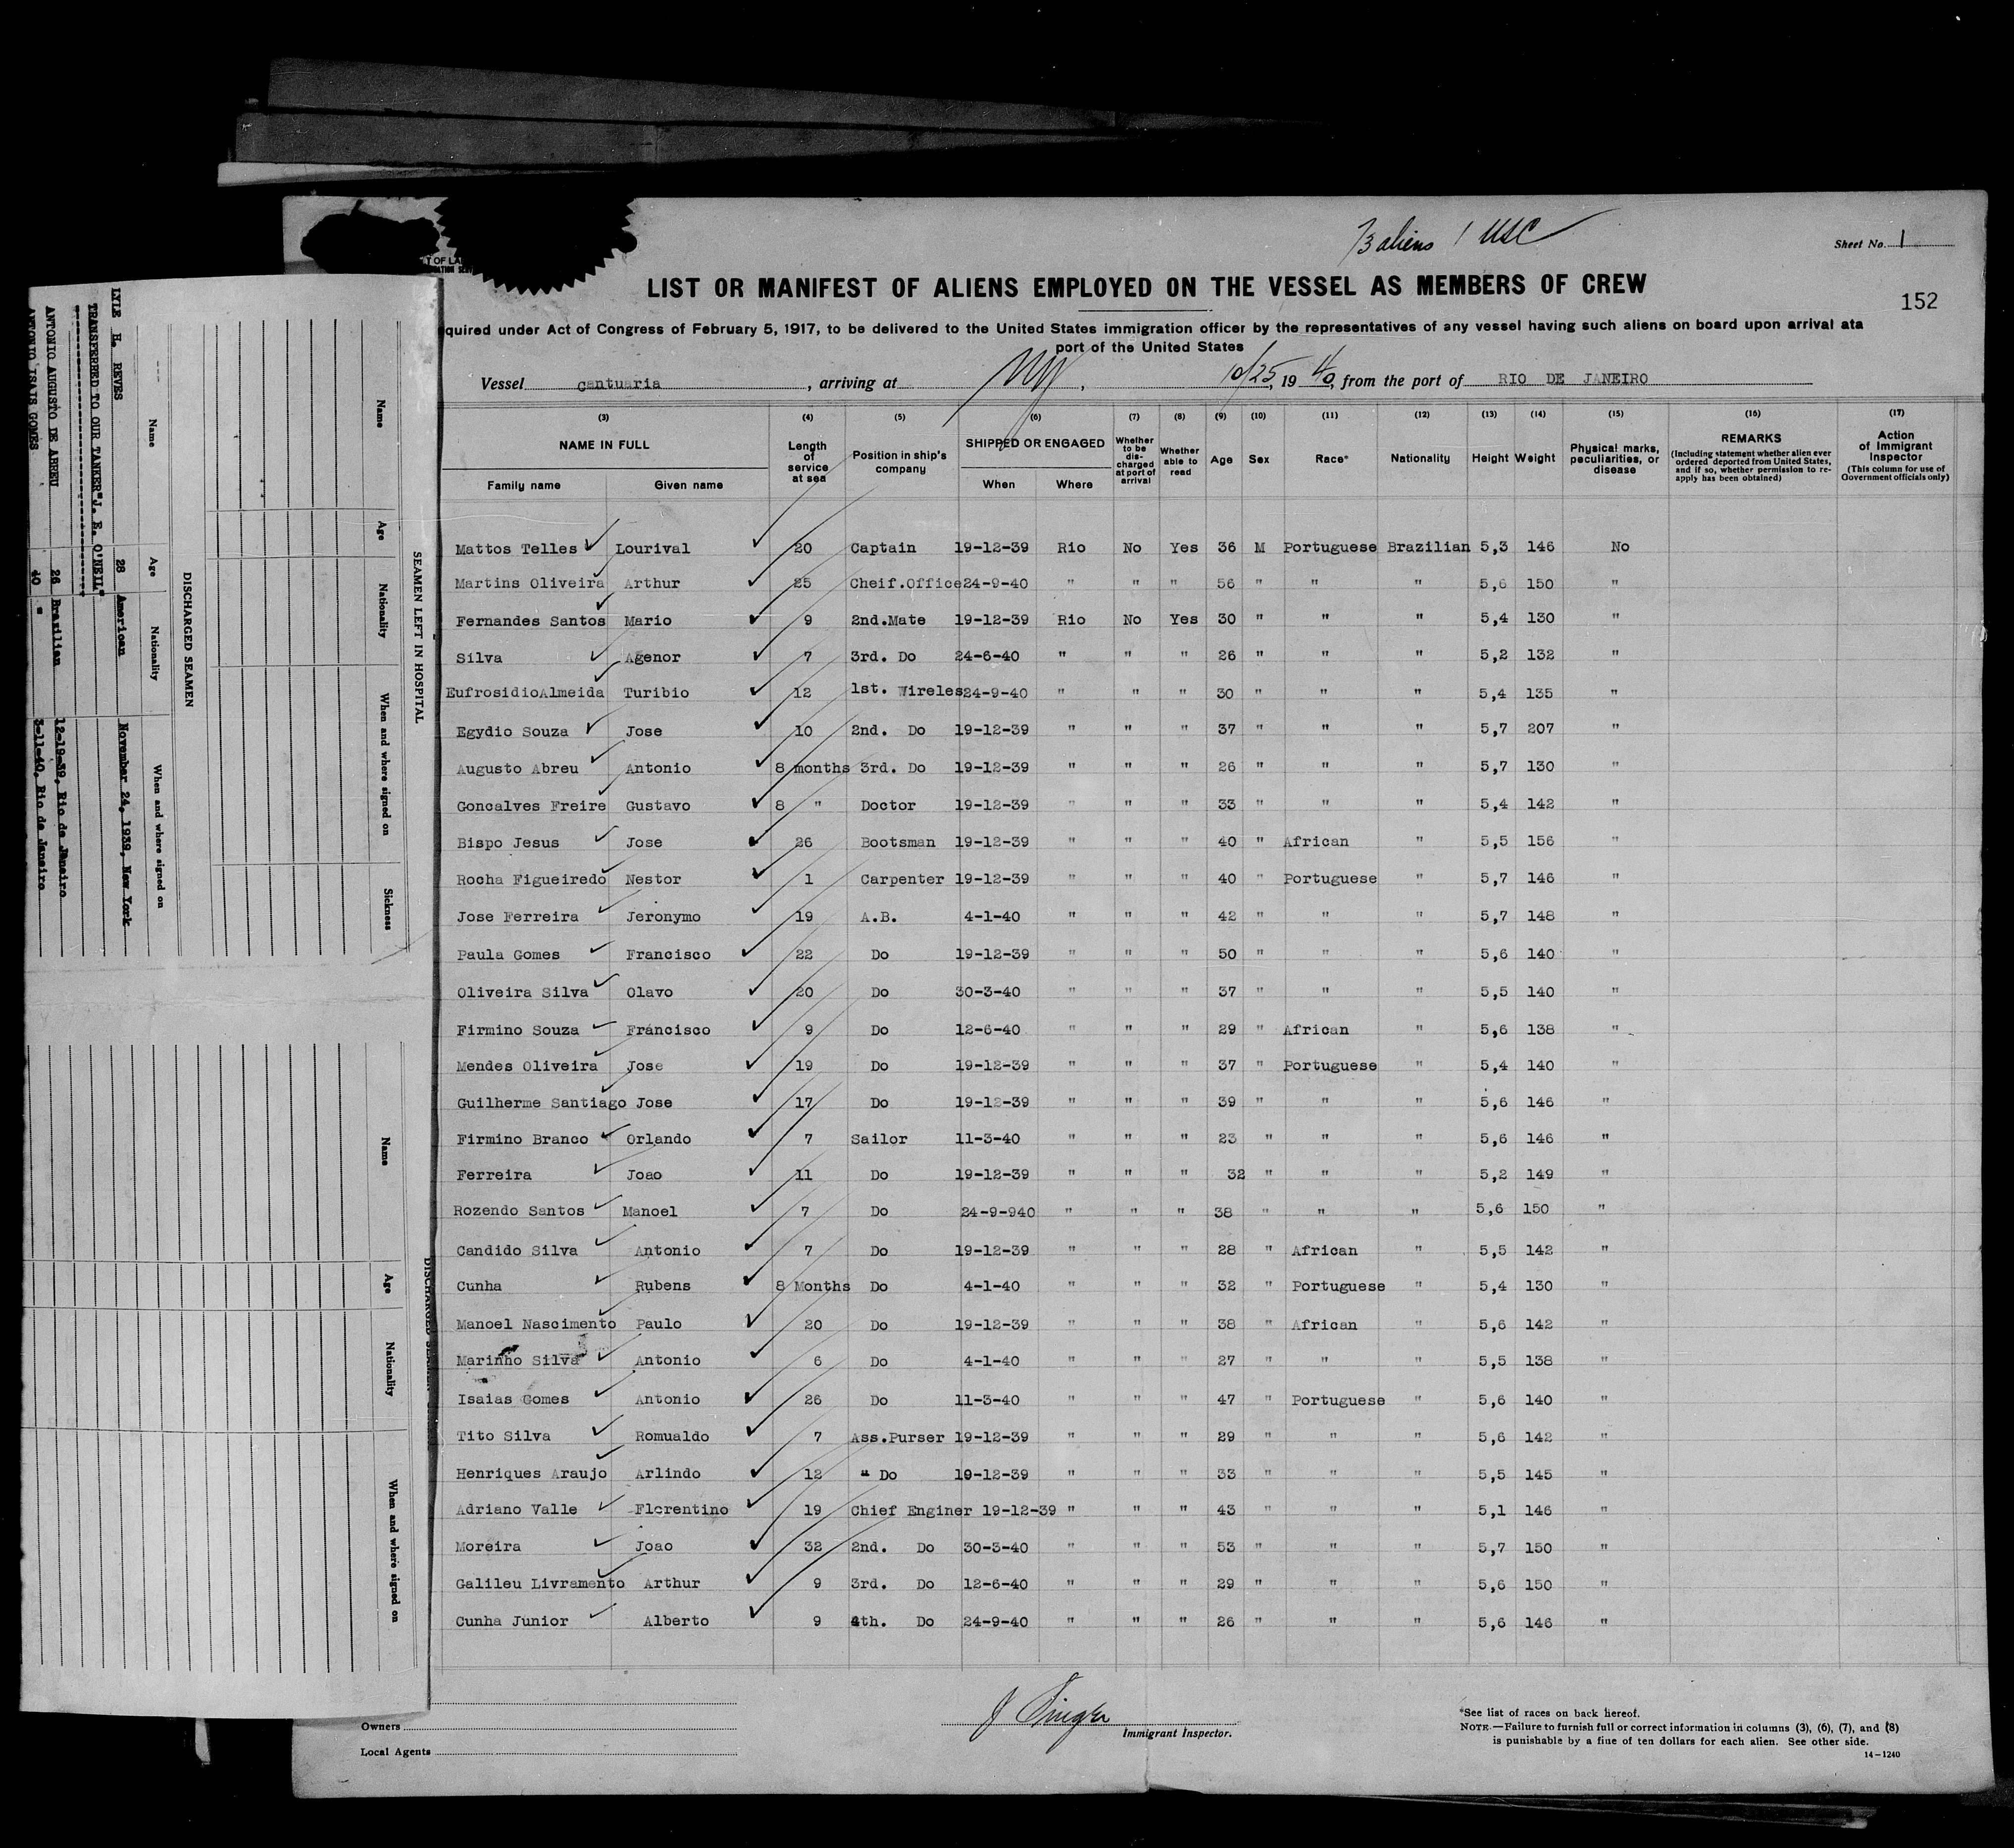 73 aliens 1 USC
Sheet No. 1
LIST OR MANIFEST OF ALIENS EMPLOYED ON THE VESSEL AS MEMBERS OF CREW
152
quired under Act of Congress of February 5, 1917, to be delivered to the United States immigration officer by the representatives of any vessel having such aliens on board upon arrival at a
port of the United States
Vessel cantuaria, arriving at NY, 10/25, 1940, from the port of RIO DE JANEIRO
(3) (4) (5) (6) (7) (8) (9) (10) (11) (12) (13) (14) (15) (16) (17)
NAME IN FULL Family name Given name Length of service at sea Position in ship's company SHIPPED OR ENGAGED When Where Whether to be discharged at port of arrival Whether able to read Age Sex Race* Nationality Height Weight Physical marks, peculiarities, or disease REMARKS (Including statement whether alien ever ordered deported from United States, and if so, whether permission to re-apply has been obtained) Action of Immigrant Inspector (This column for use of Government officials only)
Mattos Telles Lourival 20 Captain 19-12-39 Rio No Yes 36 M Portuguese Brazilian 5,3 146 No
Martins Oliveira Arthur 25 Cheif.Office 24-9-40 " " " 56 " " " 5,6 150 "
Fernandes Santos Mario 9 2nd.Mate 19-12-39 Rio No Yes 30 " " " 5,4 130 "
Silva Agenor 7 3rd. Do 24-6-40 " " " 26 " " " 5,2 132 "
EufrosidioAlmeida Turibio 12 1st. Wireles 24-9-40 " " " 30 " " " 5,4 135 "
Egydio Souza Jose 10 2nd. Do 19-12-39 " " " 37 " " " 5,7 207 "
Augusto Abreu Antonio 8 months 3rd. Do 19-12-39 " " " 26 " " " 5,7 130 "
Goncalves Freire Gustavo 8 " Doctor 19-12-39 " " " 33 " " " 5,4 142 "
Bispo Jesus Jose 26 Bootsman 19-12-39 " " " 40 " African " 5,5 156 "
Rocha Figueiredo Nestor 1 Carpenter 19-12-39 " " " 40 " Portuguese " 5,7 146 "
Jose Ferreira Jeronymo 19 A.B. 4-1-40 " " " 42 " " " 5,7 148 "
Paula Gomes Francisco 22 Do 19-12-39 " " " 50 " " " 5,6 140 "
Oliveira Silva Olavo 20 Do 30-3-40 " " " 37 " " " 5,5 140 "
Firmino Souza Francisco 9 Do 12-6-40 " " " 29 " African " 5,6 138 "
Mendes Oliveira Jose 19 Do 19-12-39 " " " 37 " Portuguese " 5,4 140 "
Guilherme Santiago Jose 17 Do 19-12-39 " " " 39 " " " 5,6 146 "
Firmino Branco Orlando 7 Sailor 11-3-40 " " " 23 " " " 5,6 146 "
Ferreira Joao 11 Do 19-12-39 " " " 32 " " " 5,2 149 "
Rozendo Santos Manoel 7 Do 24-9-940 " " " 38 " " " 5,6 150 "
Candido Silva Antonio 7 Do 19-12-39 " " " 28 " African " 5,5 142 "
Cunha Rubens 8 Months Do 4-1-40 " " " 32 " Portuguese " 5,4 130 "
Manoel Nascimento Paulo 20 Do 19-12-39 " " " 38 " African " 5,6 142 "
Marinho Silva Antonio 6 Do 4-1-40 " " " 27 " " " 5,5 138 "
Isaias Gomes Antonio 26 Do 11-3-40 " " " 47 " Portuguese " 5,6 140 "
Tito Silva Romualdo 7 Ass.Purser 19-12-39 " " " 29 " " " 5,6 142 "
Henriques Araujo Arlindo 12 " Do 19-12-39 " " " 33 " " " 5,5 145 "
Adriano Valle Florentino 19 Chief Enginer 19-12-39 " " " 43 " " " 5,1 146 "
Moreira Joao 32 2nd. Do 30-3-40 " " " 53 " " " 5,7 150 "
Galileu Livramento Arthur 9 3rd. Do 12-6-40 " " " 29 " " " 5,6 150 "
Cunha Junior Alberto 9 4th. Do 24-9-40 " " " 26 " " " 5,6 146 "
Owners
Local Agents
J Singer
Immigrant Inspector.
*See list of races on back hereof.
NOTE.—Failure to furnish full or correct information in columns (3), (6), (7), and (8)
is punishable by a fine of ten dollars for each alien. See other side.
14-1240
SEAMEN LEFT IN HOSPITAL
Name Age Nationality When and where signed on Sickness
DISCHARGED SEAMEN
Name Age Nationality When and where signed on
LYLE H. REVES 28 American November 24, 1939, New York
TRANSFERRED TO OUR TANKER "J. E. O'NEIL"
ANTONIO AUGUSTO DE ABREU 26 Brazilian 12-19-39, Rio de Janeiro
ANTONIO ISAIS GOMES 40 " 3-11-40, Rio de Janeiro
DISCHARGED SEAMEN
Name Age Nationality When and where signed on